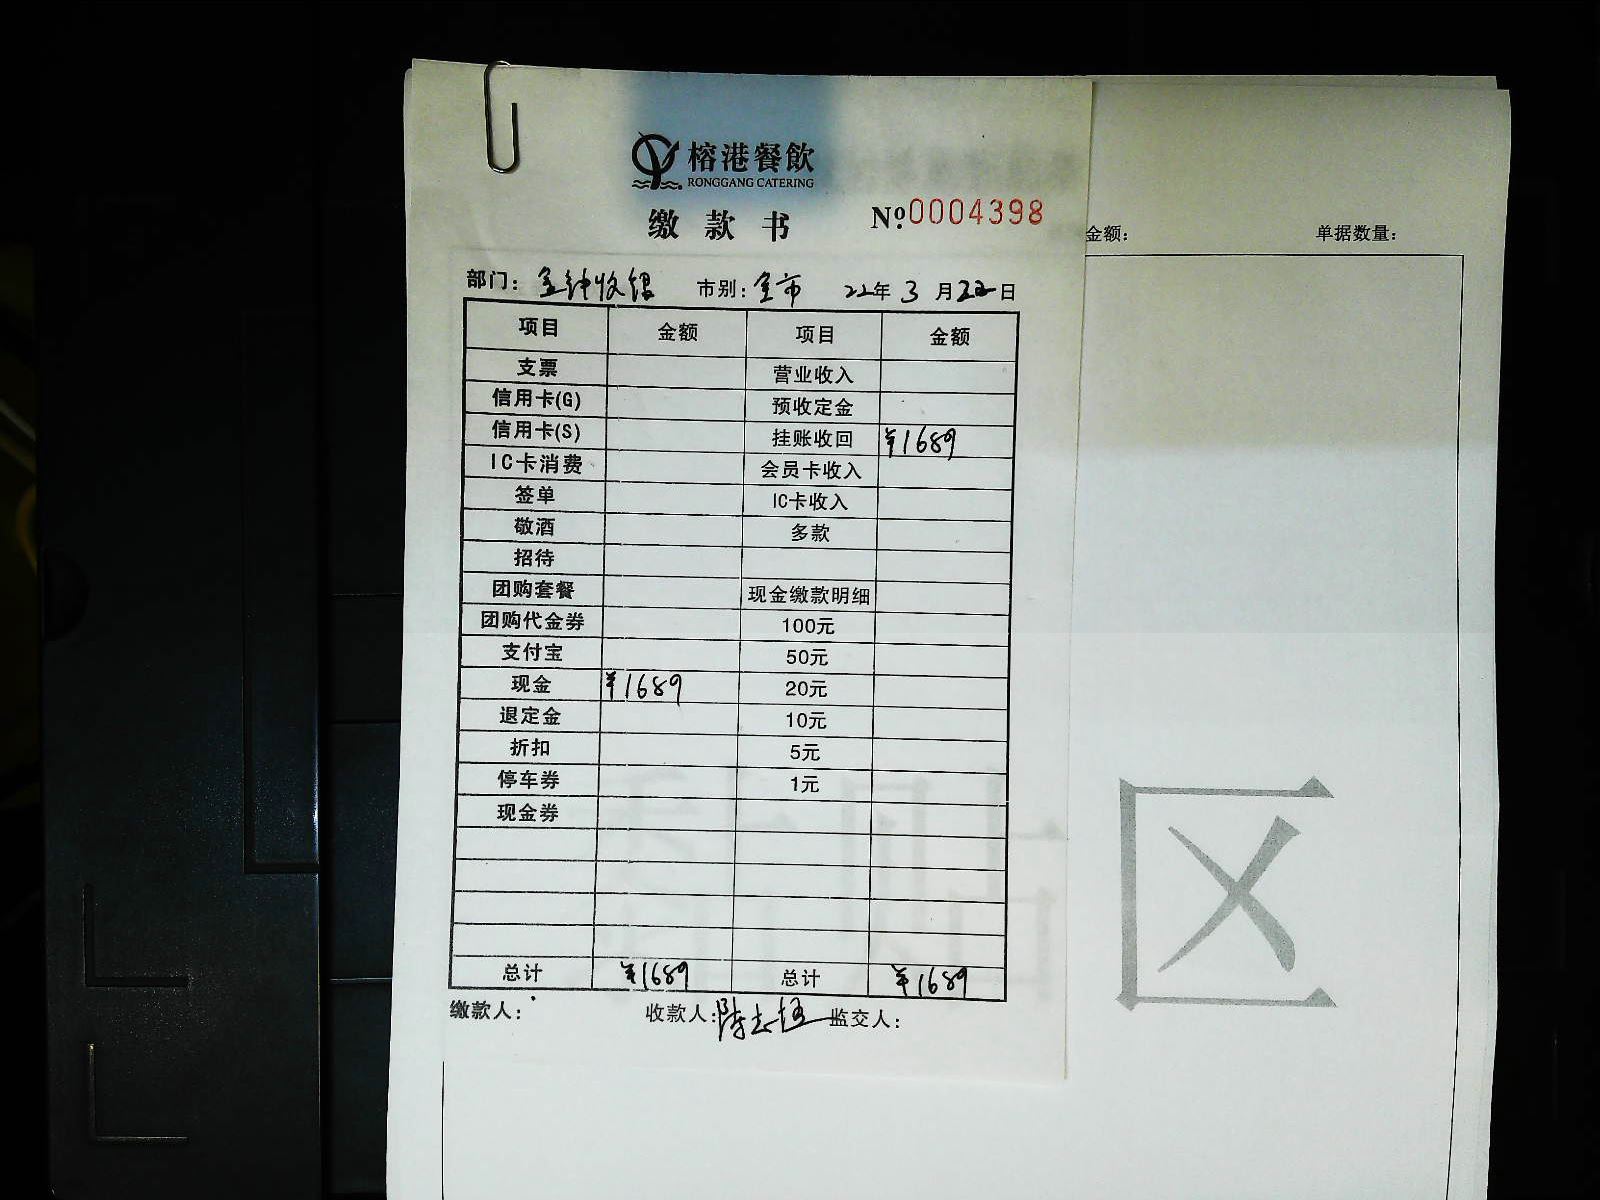 榕港餐飲
RONGGANG CATERING
缴款书 №0004398
金额： 单据数量：
部门：金钟收银 市别：全市 22年3月22日
项目 金额 项目 金额
支票 营业收入
信用卡(G) 预收定金
信用卡(S) 挂账收回 ¥1689
IC卡消费 会员卡收入
签单 IC卡收入
敬酒 多款
招待
团购套餐 现金缴款明细
团购代金券 100元
支付宝 50元
现金 ¥1689 20元
退定金 10元
折扣 5元
停车券 1元
现金券
区
总计 ¥1689 总计 ¥1689
缴款人： 收款人： 监交人：